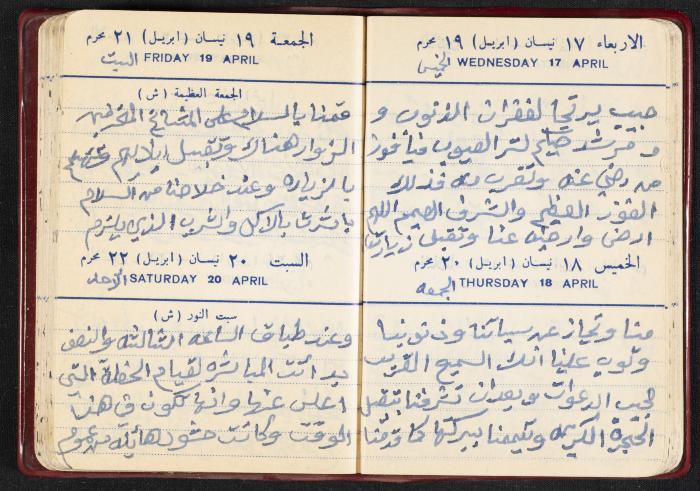 الاربعاء ١٧ نيسان (ابريل) ١٩ محرم
WEDNESDAY 17 APRIL الخميس
حبيب يرتجا لغفران الذنوب و
و مرشد حليم لستر العيوب فيا فوز
من رضي عنه وتقرب منه فذلك
الفوز العظيم والشرف العميم اللهم
ارضى وارضيه عنا وتقبل زيارتنا
الخميس ١٨ نيسان (ابريل) ٢٠ محرم
THURSDAY 18 APRIL الجمعه
منا وتجاوز عن سيياتنا وذنوبنا
وتوب علينا انك السميع القريب
مجيب الدعوات وبعدان تشرفنا بتقبيل
الحجرة الكريمه وتيممنا ببركتها كما قدمنا
الجمعة ١٩ نيسان (ابريل) ٢١ محرم
FRIDAY 19 APRIL السبت
الجمعة العظيمة (ش)
قمنا بالسلام على المشائخ
الزوار هناك وتقبيل اياديهم
بالزياره وعند خلاصنا من السلام
باشرنا بالاكل والشرب الذي يلزم
السبت ٢٠ نيسان (ابريل) ٢٢ محرم
SATURDAY 20 APRIL الأحد
سبت النور (ش)
وعند طباق الساعه الثالثه والنصف
بدائت المباشره لقيام الحفلة التي
اعلن عنها وانها تكون في هذا
الوقت وكانت حشود هائلة من عموم